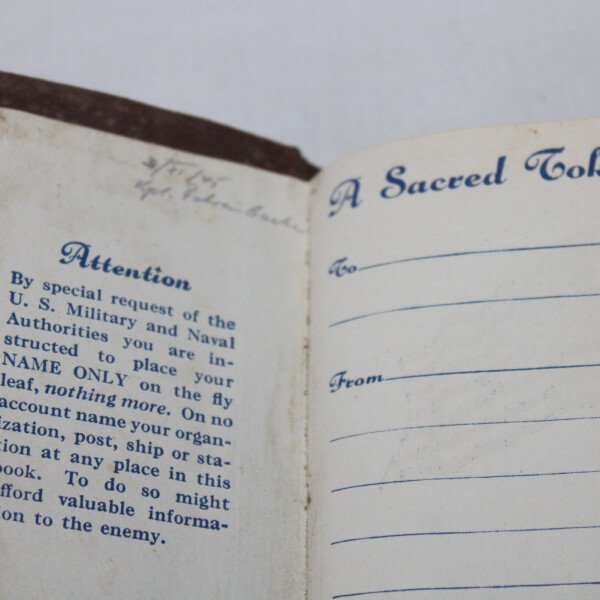 Attention
By special request of the
U. S. Military and Naval
Authorities you are in-
structed to place your
NAME ONLY on the fly
leaf, nothing more. On no
account name your organ-
ization, post, ship or sta-
tion at any place in this
book. To do so might
afford valuable informa-
tion to the enemy.
A Sacred Tok
To
From